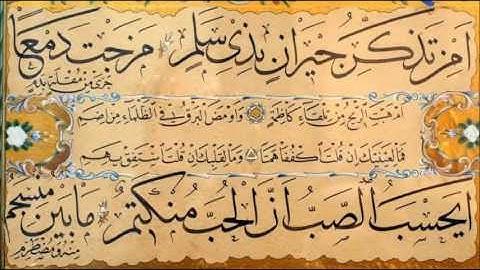 أمن تذكر جيران بذي سلم مزجت دمعا
جرى من مقلة بدم
أم هبت الريح من تلقاء كاظمة وأومض البرق في الظلماء من إضم
فما لعينيك إن قلت اكففا همتا وما لقلبك إن قلت استفق يهم
أيحسب الصب أن الحب منكتم ما بين منسجم
منه ومضطرم